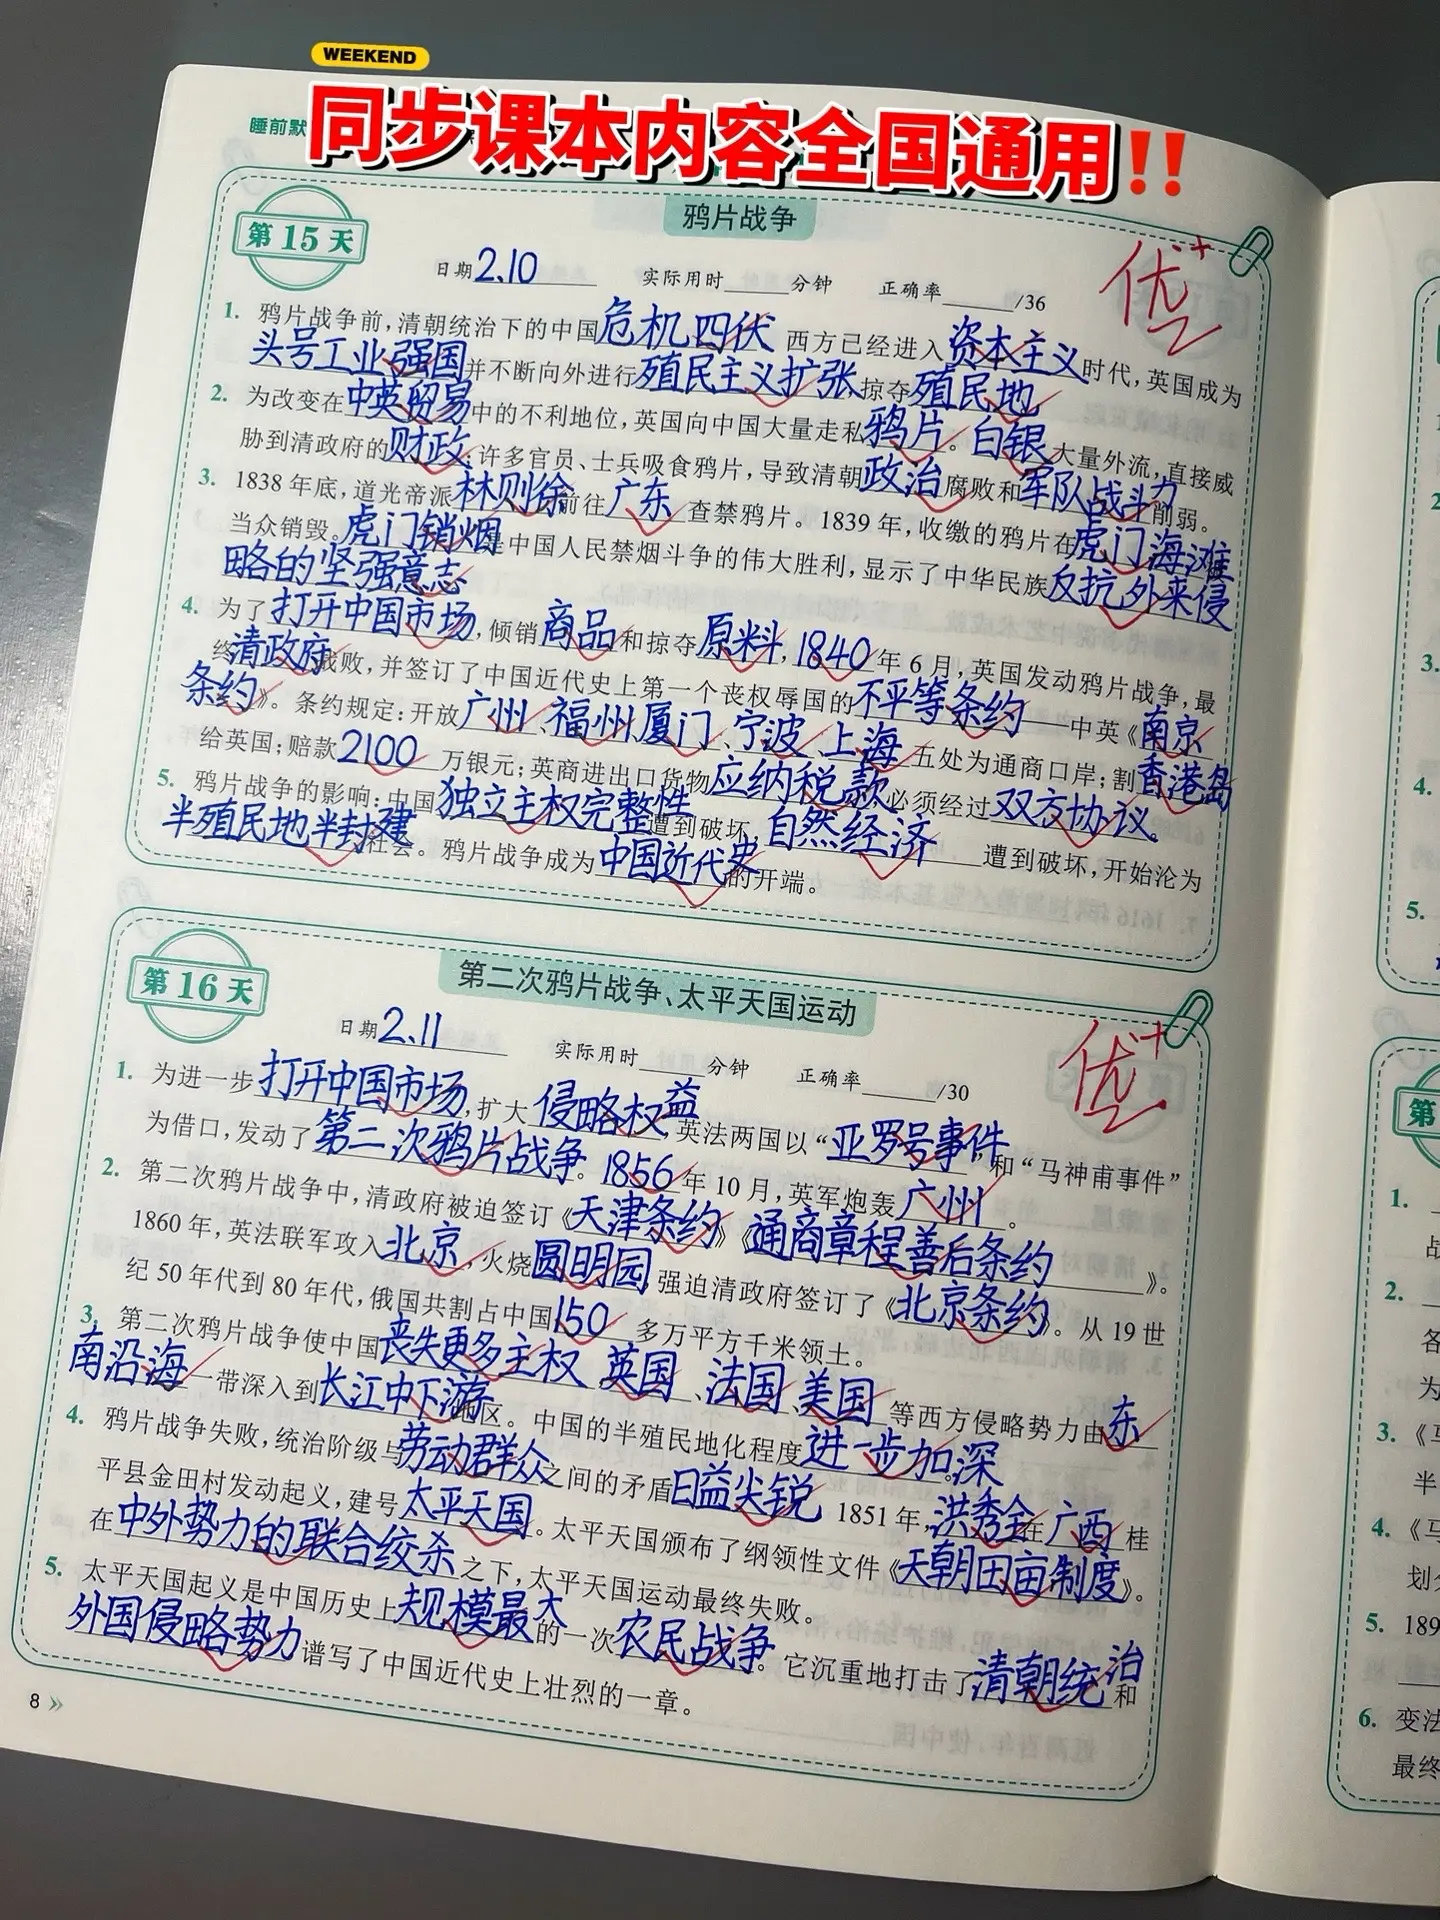 WEEKEND
睡前默
同步课本内容全国通用!!
鸦片战争
第15天
优+
日期2.10 实际用时____分钟 正确率____/36
1. 鸦片战争前,清朝统治下的中国危机四伏 西方已经进入资本主义时代,英国成为
头号工业强国并不断向外进行殖民主义扩张掠夺殖民地
2. 为改变在中英贸易中的不利地位,英国向中国大量走私鸦片。白银大量外流,直接威
胁到清政府的财政;许多官员、士兵吸食鸦片,导致清朝政治腐败和军队战斗力削弱。
3. 1838年底,道光帝派林则徐前往广东查禁鸦片。1839年,收缴的鸦片在虎门海滩
当众销毁。虎门销烟是中国人民禁烟斗争的伟大胜利,显示了中华民族反抗外来侵
略的坚强意志
4. 为了打开中国市场,倾销商品和掠夺原料,1840年6月,英国发动鸦片战争,最
终清政府战败,并签订了中国近代史上第一个丧权辱国的不平等条约——中英《南京
条约》。条约规定:开放广州、福州厦门、宁波、上海五处为通商口岸;割香港岛
给英国;赔款2100万银元;英商进出口货物应纳税款必须经过双方协议。
5. 鸦片战争的影响:中国独立主权完整性遭到破坏,自然经济遭到破坏,开始沦为
半殖民地半封建社会。鸦片战争成为中国近代史的开端。
第二次鸦片战争、太平天国运动
第16天
优+
日期2.11 实际用时____分钟 正确率____/30
1. 为进一步打开中国市场,扩大侵略权益,英法两国以“亚罗号事件和“马神甫事件”
为借口,发动了第二次鸦片战争。1856年10月,英军炮轰广州。
2. 第二次鸦片战争中,清政府被迫签订《天津条约》《通商章程善后条约》。
1860年,英法联军攻入北京,火烧圆明园,强迫清政府签订了《北京条约》。从19世
纪50年代到80年代,俄国共割占中国150多万平方千米领土。
3. 第二次鸦片战争使中国丧失更多主权 英国、法国、美国等西方侵略势力由东
南沿海一带深入到长江中下游地区。中国的半殖民地化程度进一步加深
4. 鸦片战争失败,统治阶级与劳动群众之间的矛盾日益尖锐 1851年,洪秀全在广西桂
平县金田村发动起义,建号太平天国。太平天国颁布了纲领性文件《天朝田亩制度》。
在中外势力的联合绞杀之下,太平天国运动最终失败。
5. 太平天国起义是中国历史上规模最大的一次农民战争。它沉重地打击了清朝统治和
外国侵略势力谱写了中国近代史上壮烈的一章。
8 »
第
1.
战
2.
各
为
3. 《马
半
4. 《马
划分
5. 189
6. 变法
最终